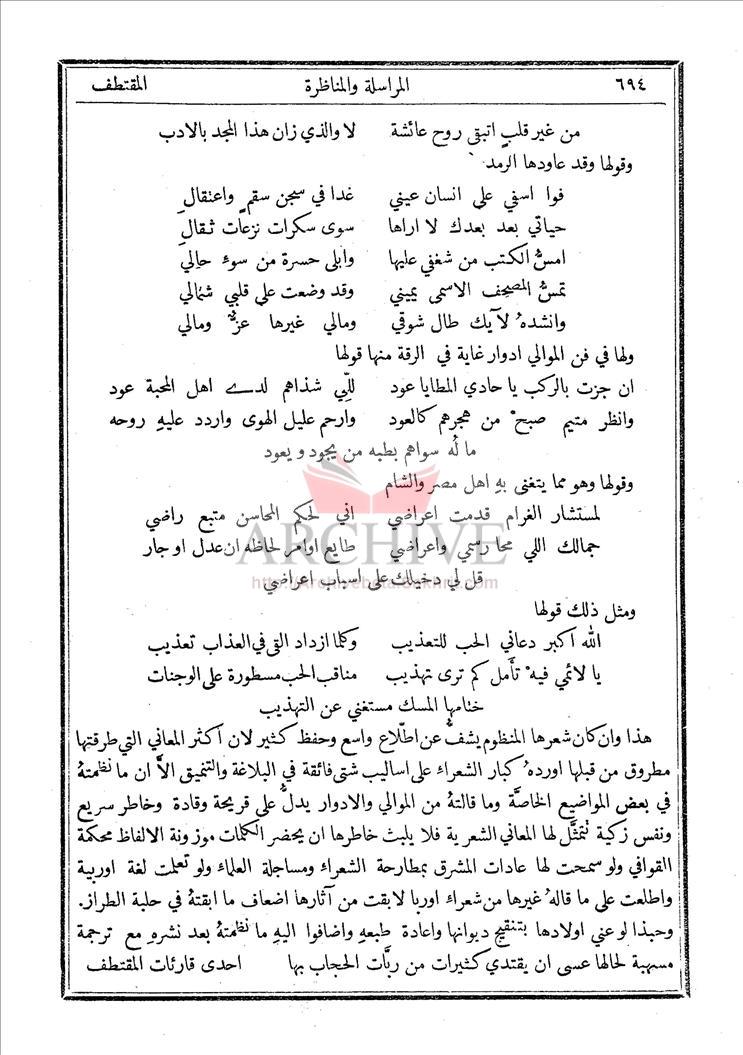 ٦٩٤ المراسلة والمناظرة المقتطف
من غير قلبٍ اتبقى روح عائشة لا والذي زان هذا المجد بالادب
وقولها وقد عاودها الرمد
فوا اسفي على انسان عيني غدا في سجن سقمٍ واعتقالِ
حياتي بعد بعدك لا اراها سوى سكرات نزعات ثقالِ
امسُّ الكتب من شغفي عليها وابلى حسرة من سوءِ حالي
تمسُّ المصحف الاسمى يميني وقد وضعت على قلبي شمالي
وانشدهُ لآيك طال شوقي ومالي غيرها عزٌّ ومالي
ولها في فن الموالي ادوار غاية في الرقة منها قولها
ان جزت بالركب يا حادي المطايا عود للّي شذاهم لدے اهل المحبة عود
وانظر متيم صبحْ من هجرهم كالعود وارحم عليل الهوى واردد عليهِ روحه
ما لُه سواهم بطبه من يجود و يعود
وقولها وهو مما يتغنى بهِ اهل مصر والشام
لمستشار الغرام قدمت اعراضي اني لحكم المحاسن متبع راضي
جمالك اللي محا رسمي واعراضي طايع اوامر لحاظه ان عدل او جار
قل لي دخيلك على اسباب اعراضي
ARCHIVE
ومثل ذلك قولها
الله اكبر دعاني الحب للتعذيب وكلما ازداد القى في العذاب تعذيب
يا لائمي فيهْ تأَمل كم ترى تهذيب مناقب الحب مسطورة على الوجنات
ختامها المسك مستغني عن التهذيب
هذا وان كان شعرها المنظوم يشفُّ عن اطّلاع واسع وحفظ كثير لان أكثر المعاني التي طرقتها
مطروق من قبلها اوردهُ كبار الشعراء على اساليب شتى فائقة في البلاغة والتنميق الاَّ ان ما نظمتهُ
في بعض المواضيع الخاصَّة وما قالتهُ من الموالي والادوار يدلُّ على قريحة وقادة وخاطر سريع
ونفس زكية تتمثَّل لها المعاني الشعرية فلا يلبث خاطرها ان يحضر الكلمات موزونة الالفاظ محكمة
القوافي ولو سمحت لها عادات المشرق بمطارحة الشعراء ومساجلة العلماء ولو تعلمت لغة اوربية
واطلعت على ما قالهُ غيرها من شعراء اوربا لابقت من آثارها اضعاف ما ابقتهُ في حلبة الطراز.
وحبذا لو عني اولادها بتنقيح ديوانها واعادة طبعهِ واضافوا اليهِ ما نظمتهُ بعد نشرهِ مع ترجمة
مسهبة لحالها عسى ان يقتدي كثيرات من ربَّات الحجاب بها احدى قارئات المقتطف